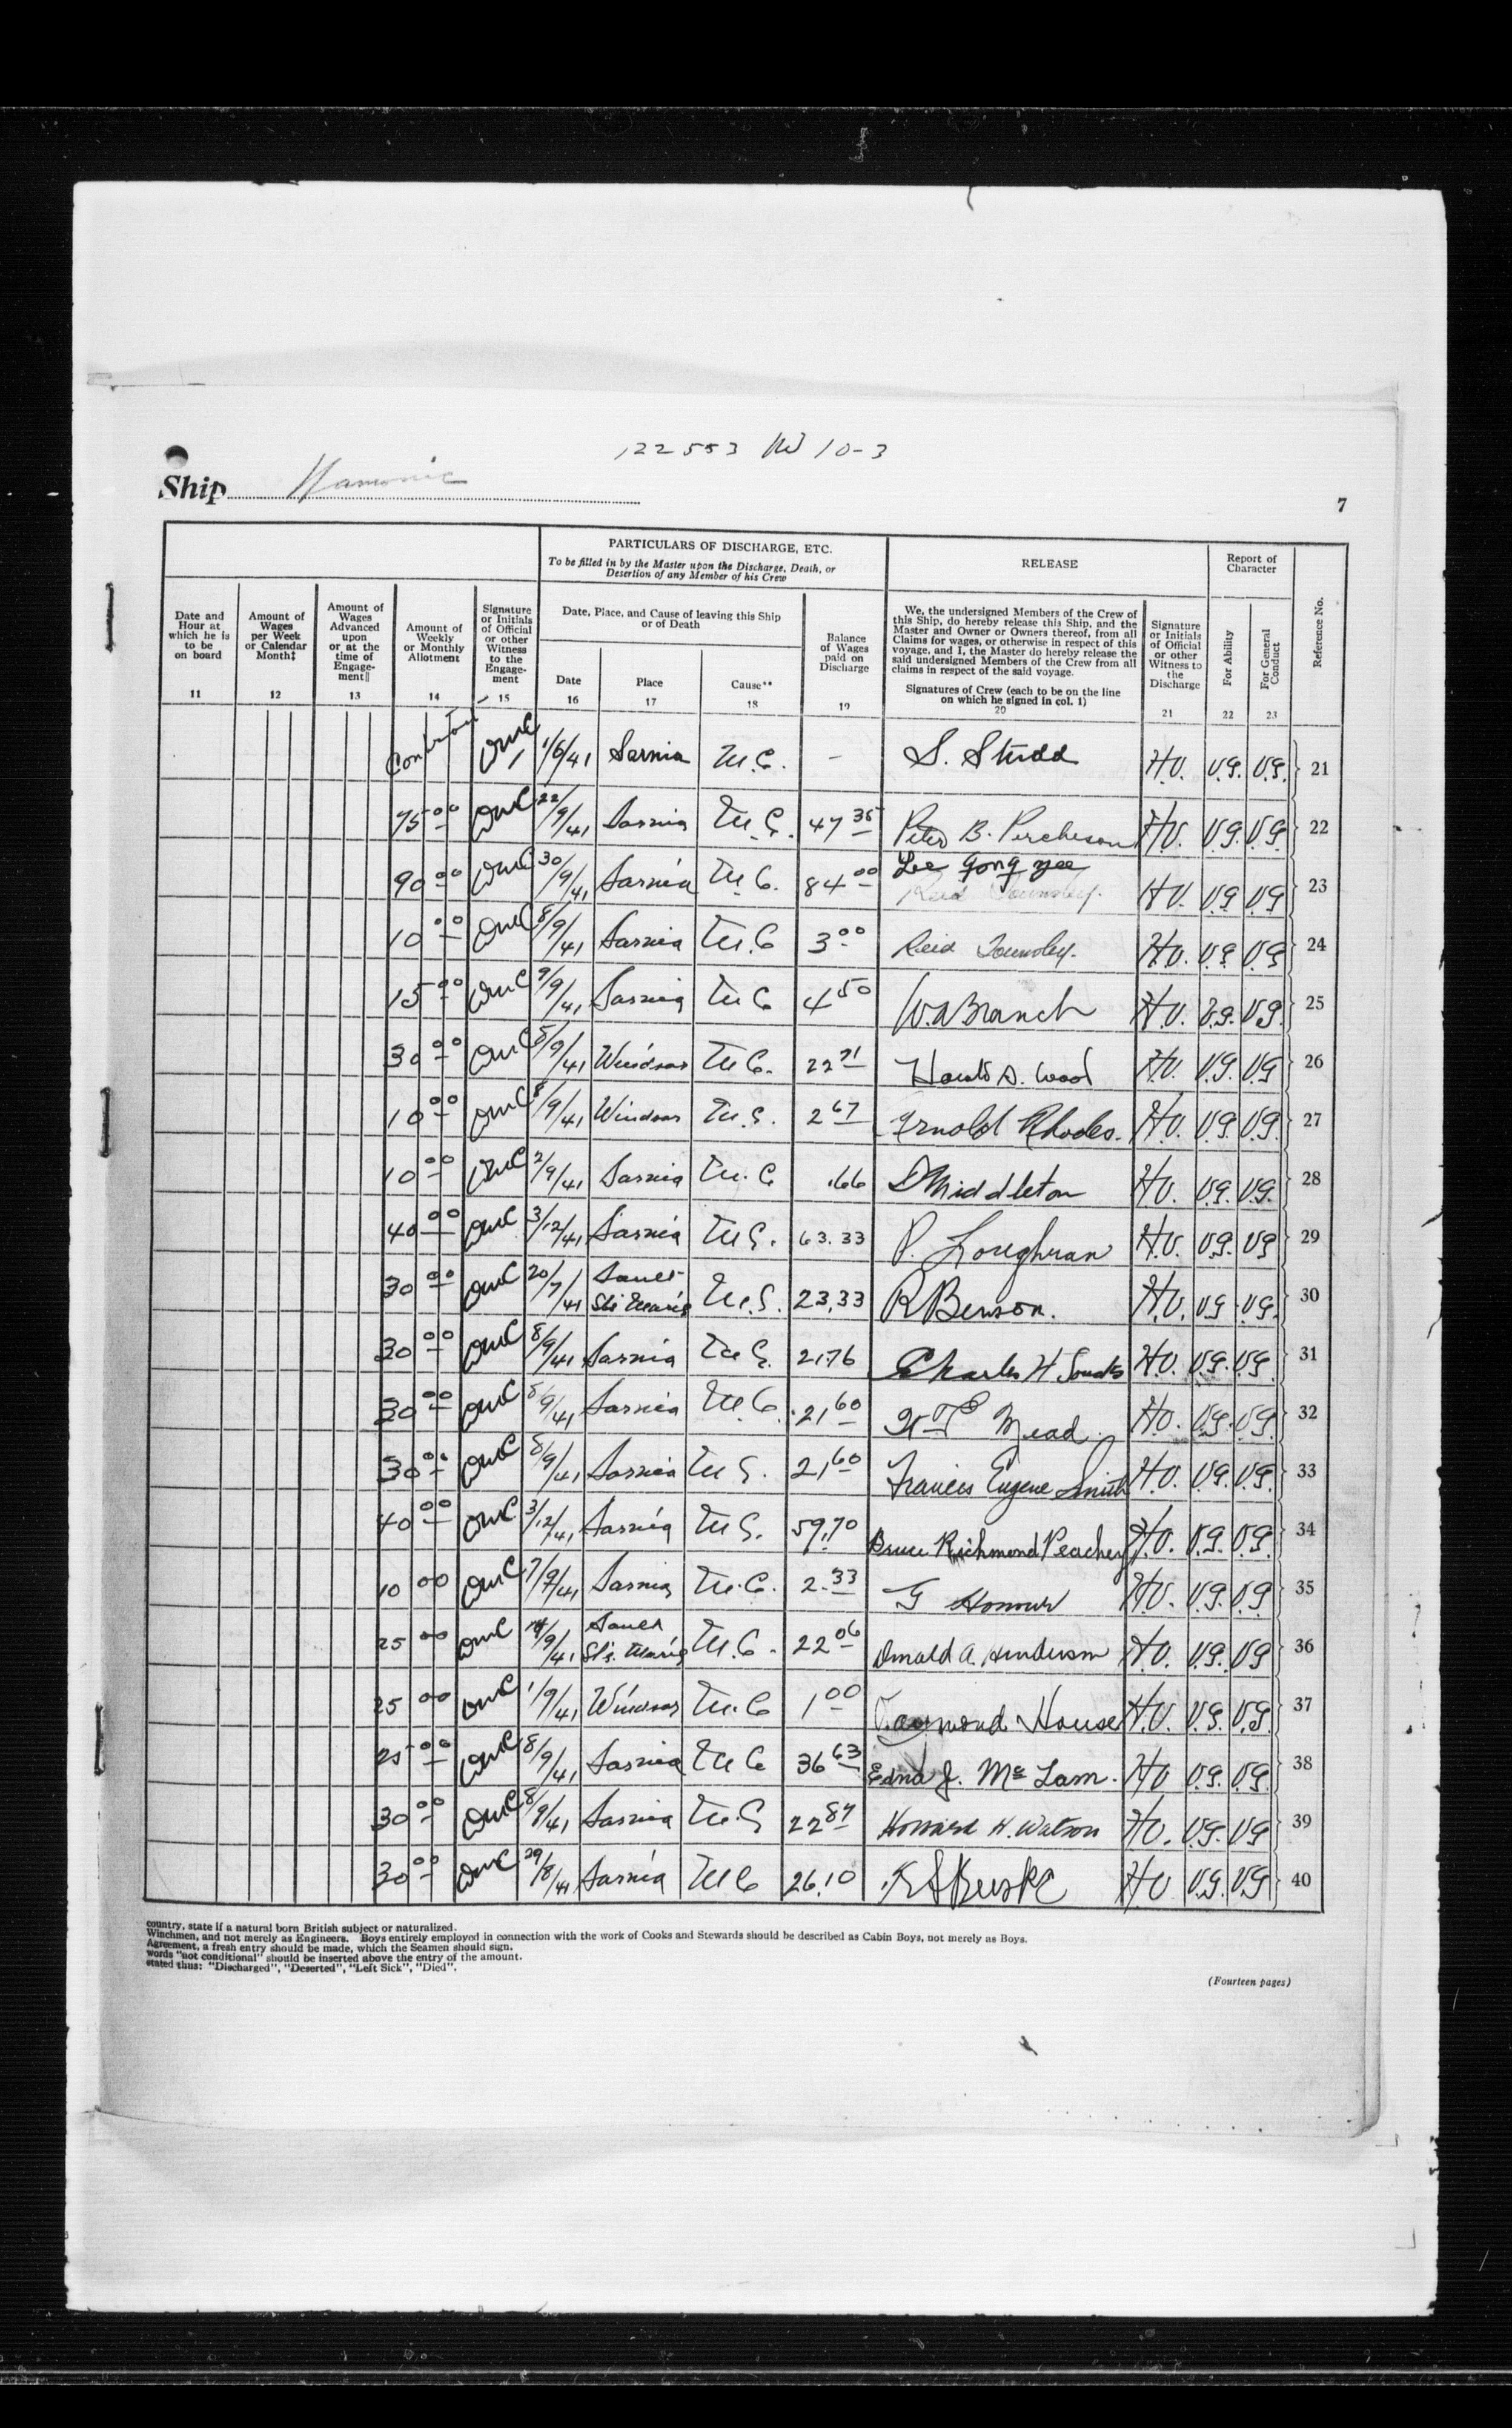 122553 10-3
Ship Hamonic
7
PARTICULARS OF DISCHARGE, ETC.
To be filled in by the Master upon the Discharge, Death, or
Desertion of any Member of his Crew
RELEASE
Report of
Character
Reference No.
Date and
Hour at
which he is
to be
on board
11
Amount of
Wages
per Week
or Calendar
Month‡
12
Amount of
Wages
Advanced
upon
or at the
time of
Engage-
ment‖
13
Amount of
Weekly
or Monthly
Allotment
14
Signature
or Initials
of Official
or other
Witness
to the
Engage-
ment
15
Date, Place, and Cause of leaving this Ship
or of Death
Date
16
Place
17
Cause**
18
Balance
of Wages
paid on
Discharge
19
We, the undersigned Members of the Crew of
this Ship, do hereby release this Ship, and the
Master and Owner or Owners thereof, from all
Claims for wages, or otherwise in respect of this
voyage, and I, the Master do hereby release the
said undersigned Members of the Crew from all
claims in respect of the said voyage.
Signatures of Crew (each to be on the line
on which he signed in col. 1)
20
Signature
or Initials
of Official
or other
Witness to
the
Discharge
21
For Ability
22
For General
Conduct
23
1/6/41 Sarnia M.C. - S. Studd H.V. V.G. V.G. 21
75 00 OMC 22/9/41 Sarnia M.C. 47 35 Peter B. H.V. V.G. V.G. 22
90 00 OMC 30/9/41 Sarnia M.C. 84 00 Lee Gong Yee H.V. V.G V.G 23
10 00 OMC 8/9/41 Sarnia M.C 3 00 Reid Townsley. H.V. V.G V.G 24
15 00 OMC 9/9/41 Sarnia M C 4 50 W.A Branch H.V. V.G. V.G. 25
30 00 OMC 5/9/41 Windsor M C. 22 71 Harold D. Wood H.V. V.G. V.G 26
10 00 OMC 8/9/41 Windsor M.C. 2 67 Arnold Rhodes. H.V. V.G. V.G. 27
10 00 OMC 2/9/41 Sarnia M.C .66 D Middleton H.V. V.G. V.G. 28
40 00 OMC 3/12/41 Sarnia M C. 63.33 P. Loughran H.V. V.G. V.G 29
30 00 OMC 20/7/41 Sault
Ste Marie M.C. 23.33 R Benson. H.V. V.G V.G. 30
30 00 OMC 8/9/41 Sarnia M C. 21.76 Charles H H.V. V.G. V.G. 31
30 00 OMC 8/9/41 Sarnia M.C. 21 60 Mead H.V. V.G. V.G. 32
30 00 OMC 8/9/41 Sarnia M C. 21 60 Francis Eugene Smith H.V. V.G. V.G. 33
40 00 OMC 3/12/41 Sarnia M C. 59.70 Bruce Richmond Peachey H.V. V.G. V.G. 34
10 00 OMC 7/9/41 Sarnia M.C. 2.33 G Honour H.V. V.G. V.G 35
25 00 OMC /9/41 Sault
Ste. Marie M.C. 22 06 Donald A. Henderson H.V. V.G. V.G 36
25 00 OMC 1/9/41 Windsor M.C 1 00 Raymond House H.V. V.G. V.G. 37
25 00 OMC 8/9/41 Sarnia M C 36 63 Edna J. Mc Lam. H.V V.G. V.G. 38
30 00 OMC 8/9/41 Sarnia M.C 22 87 Howard H. Watson H.V. V.G. V.G 39
30 00 OMC 29/8/41 Sarnia M C 26.10 H.V V.G. V.G 40
country, state if a natural born British subject or naturalized.
Winchmen, and not merely as Engineers. Boys entirely employed in connection with the work of Cooks and Stewards should be described as Cabin Boys, not merely as Boys.
Agreement, a fresh entry should be made, which the Seamen should sign.
words "not conditional" should be inserted above the entry of the amount.
stated thus: "Discharged", "Deserted", "Left Sick", "Died".
(Fourteen pages)